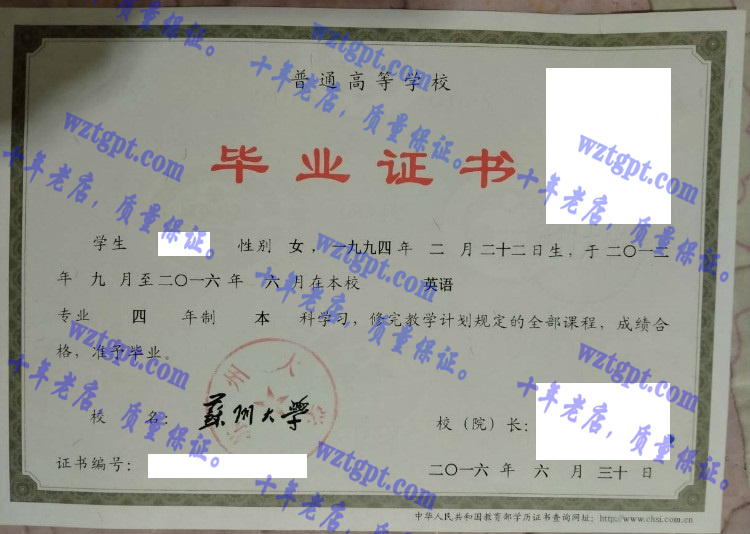 普通高等学校
毕业证书
学生 性别 女，一九九四年 二 月二十二日生，于二〇一二
年 九 月至二〇一六年 六 月在本校 英语
专业 四 年制 本 科学习，修完教学计划规定的全部课程，成绩合
格，准予毕业。
校 名： 蘇州大學
校（院）长：
证书编号：
二〇一六 年 六 月 三十 日
中华人民共和国教育部学历证书查询网址：http://www.chsi.com.cn
wztgpt.com
十年老店，质量保证。
wztgpt.com
十年老店，质量保证。
wztgpt.com
十年老店，质量保证。
wztgpt.com
十年老店，质量保证。
wztgpt.com
十年老店，质量保证。
wztgpt.com
十年老店，质量保证。
wztgpt.com
十年老店，质量保证。
wztgpt.com
十年老店，质量保证。
wztgpt.com
十年老店，质量保证。